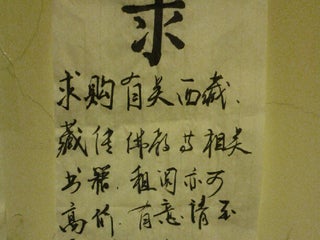 求
求购有关西藏、
藏传佛教等相关
书器、租阅亦可
高价、有意请至